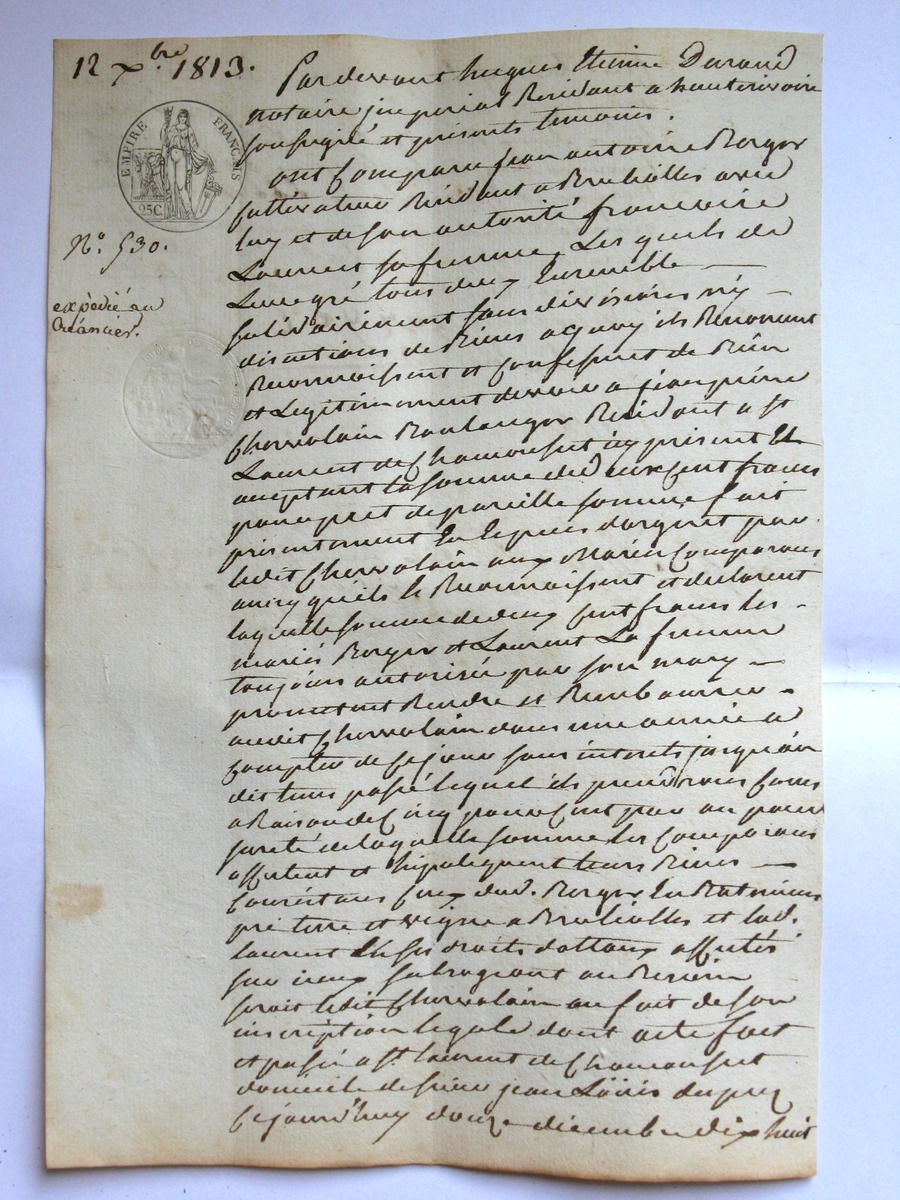 12 xbre 1813.
EMPIRE FRANÇAIS
25C
N° 530.
expédié au
Créancier.
Pardevant hugues Etienne Durand
notaire imperial Residant a hauterivoire
soussigné et présents temoins.
ont Comparu jean antoine Berger
cultivateur Residant a Brulliolles avec
luy et de son autorité francoise
Laurent sa femme, Les quels de
Leur gré tous deux Ensemble
solidairement sans divisions ny
discutions de Biens a quoy ils Renoncent
Reconnoissent et Confessent de Bien
et Legitimement devoir a
Boulanger Residant a st
Laurent de Chamousset icy présent Et
acceptant la somme de deux cent francs
pour prêt de pareille somme fait
présentement En Espèces d'argent par
ledit aux Mariés Comparants
ainsy qu'ils le Reconnaissent et declarent
laquelle somme de deux Cent francs les
mariés Berger et Laurent La femme
toujours autorisée par son mary
promettent Rendre et Rembourser
audit dans une année a
Compter de ce jour sans interets jusqu'au
dit tems passé lequel ils prendront Cours
a Raison de Cinq pour Cent par an pour
sureté de laquelle somme les Comparants
affectent et hipotequent leurs Biens
Consistans Ceux dud. Berger En Batiments
pré terre et vigne a Brulliolles et lad.
Laurent En ses droits dottaux affectés
sur iceux subrogeant au Besoin
ledit au fait de son
inscription legale dont acte fait
et passé a st. Laurent de Chamousset
domicile de sieur jean Loüis dupuy
Cejourd'huy douze décembre dix huit